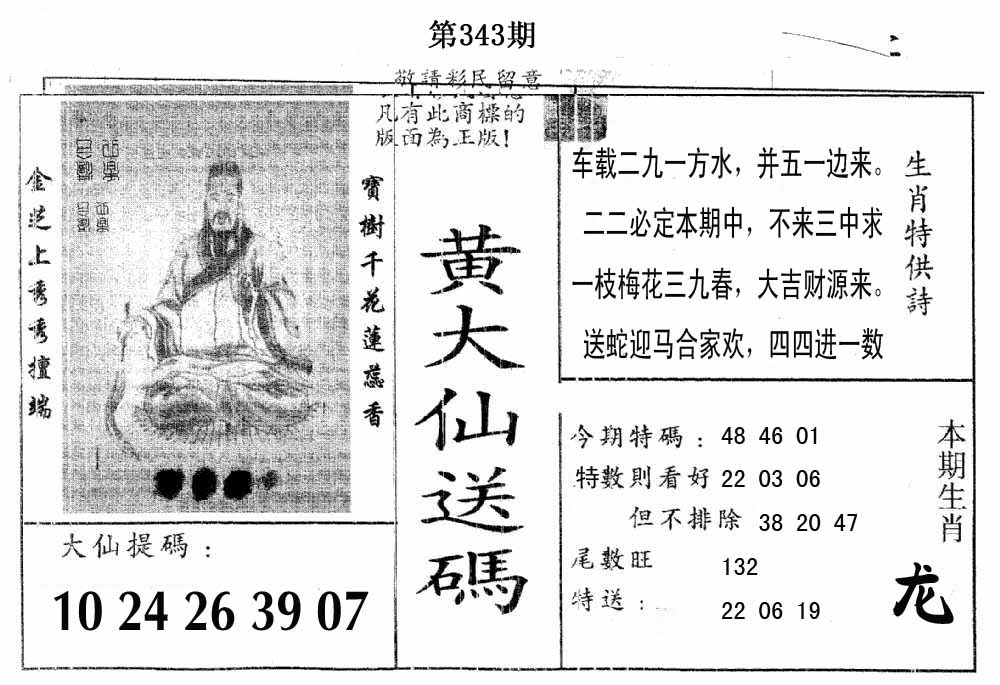 第343期
敬請彩民留意
凡有此商標的
版面為正版!
金芝上秀秀擅端
寶樹千花蓮蕊香
大仙提碼：
10 24 26 39 07
黃大仙送碼
生肖特供詩
车载二九一方水，并五一边来。
二二必定本期中，不来三中求
一枝梅花三九春，大吉财源来。
送蛇迎马合家欢，四四进一数
今期特碼：48 46 01
特數則看好 22 03 06
但不排除 38 20 47
尾數旺 132
特送： 22 06 19
本期生肖
龙